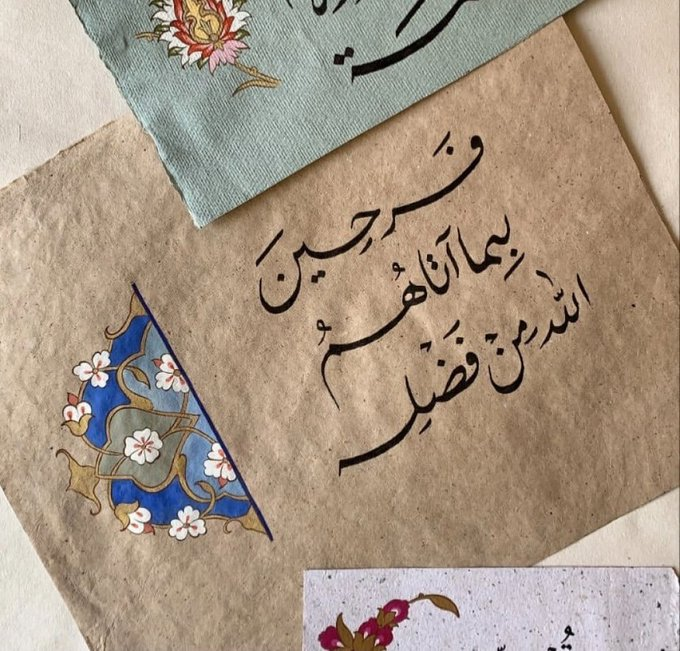 فَرحِينَ
بِما آتاهُمُ
اللّٰه مِنْ فَضْلِه